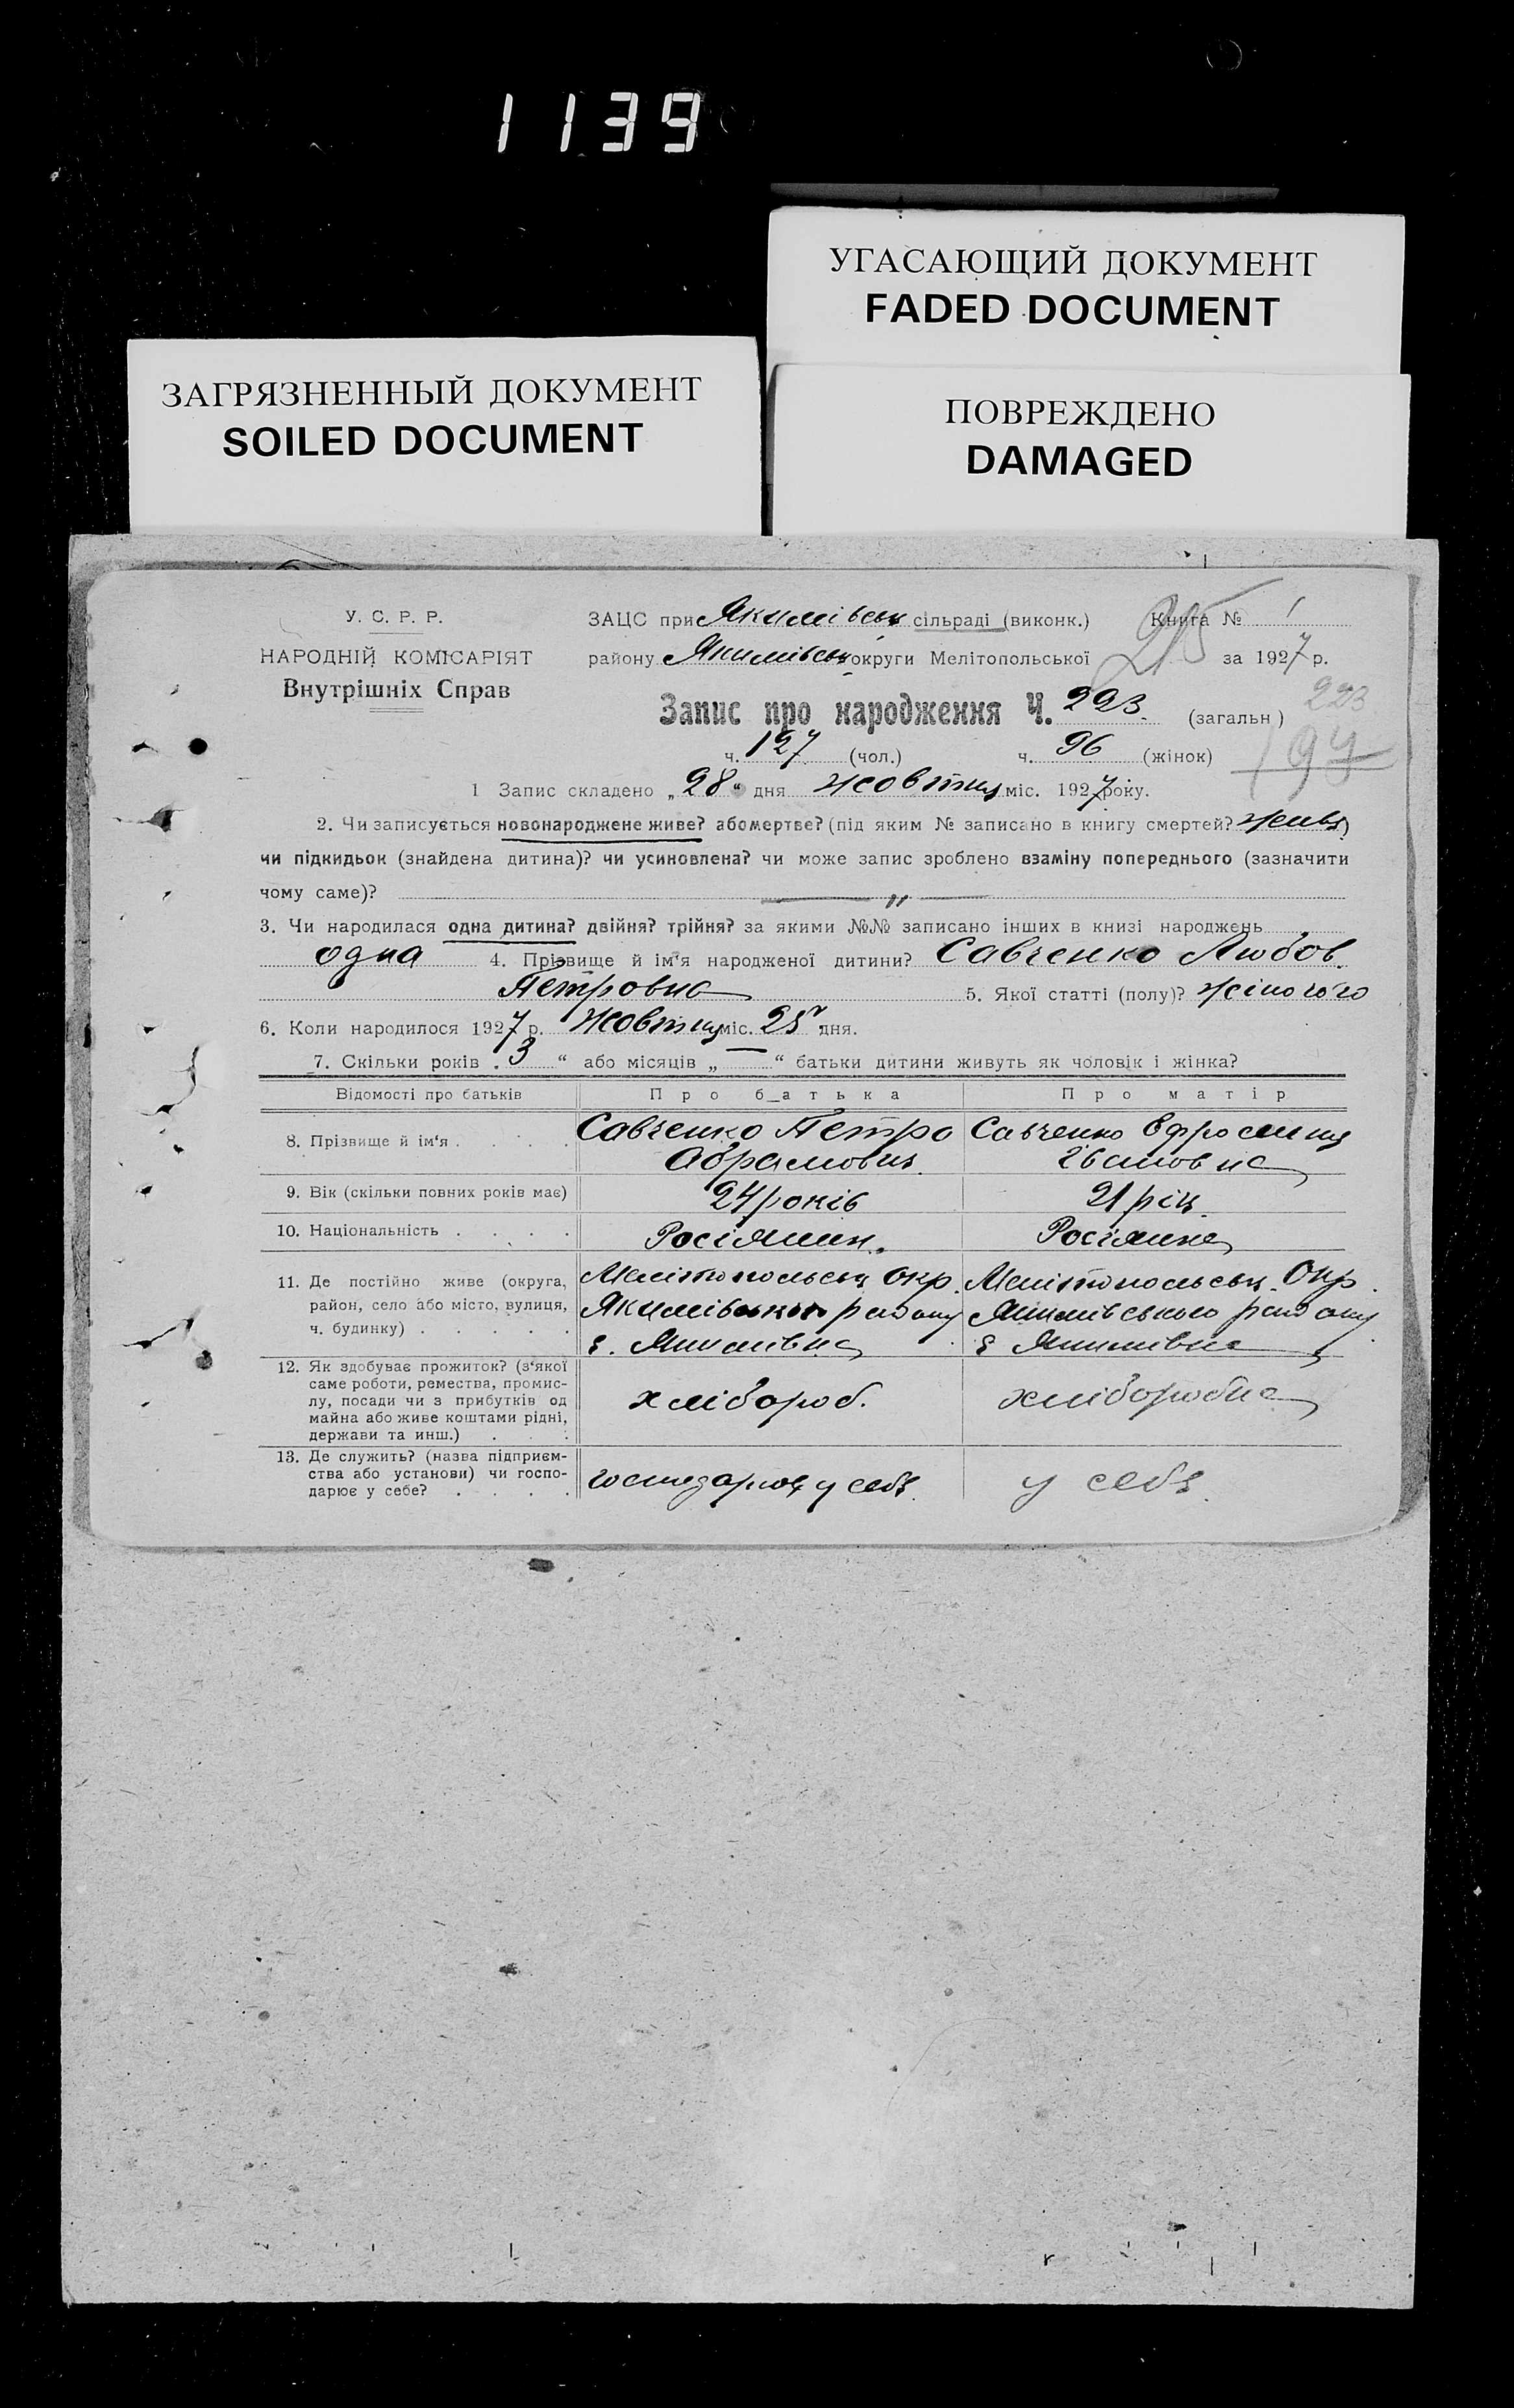 1139
УГАСАЮЩИЙ ДОКУМЕНТ
FADED DOCUMENT
ЗАГРЯЗНЕННЫЙ ДОКУМЕНТ
SOILED DOCUMENT
ПОВРЕЖДЕНО
DAMAGED
У. С. Р. Р.
НАРОДНІЙ КОМІСАРІЯТ
Внутрішніх Справ
ЗАЦС при Якимівськ сільраді (виконк.) Книга № 1
району Якимівськ округи Мелітопольської за 1927 р.
215
Запис про народження Ч. 223. (загальн)
223
ч. 127 (чол.) ч. 96 (жінок)
1 Запис складено „28“ дня жовтня міс. 1927 року.
2. Чи записується новонароджене живе? або мертве? (під яким № записано в книгу смертей? живе)
чи підкидьок (знайдена дитина)? чи усиновлена? чи може запис зроблено взаміну попереднього (зазначити
чому саме)? — „ —
3. Чи народилася одна дитина? двійня? трійня? за якими №№ записано інших в книзі народжень
одна 4. Прізвище й ім'я народженої дитини? Савченко Любов
Петровна 5. Якої статті (полу)? жіночого
6. Коли народилося 1927 р. Жовтня міс. 25 дня.
7. Скільки років „3“ або місяців „—“ батьки дитини живуть як чоловік і жінка?
Відомості про батьків Про батька Про матір
8. Прізвище й ім'я . . . . Савченко Петро Абрамович. Савченко Ефросиния Івановна
9. Вік (скільки повних років має) 24 років 21 рік.
10. Національність . . . . Росіянин. Росіянка
11. Де постійно живе (округа,
район, село або місто, вулиця,
ч. будинку) . . . . .
Мелітопольськ Окр.
Якимівського району
с. Якимівка
Мелітопольськ. Окр.
Якимівського району
с Якимівка
12. Як здобуває прожиток? (з'якої
саме роботи, ремества, промис-
лу, посади чи з прибутків од
майна або живе коштами рідні,
держави та инш.) . . .
хлібороб.
хліборобка
13. Де служить? (назва підприєм-
ства або установи) чи госпо-
дарює у себе? . . . .
господарює у себе.
у себе.